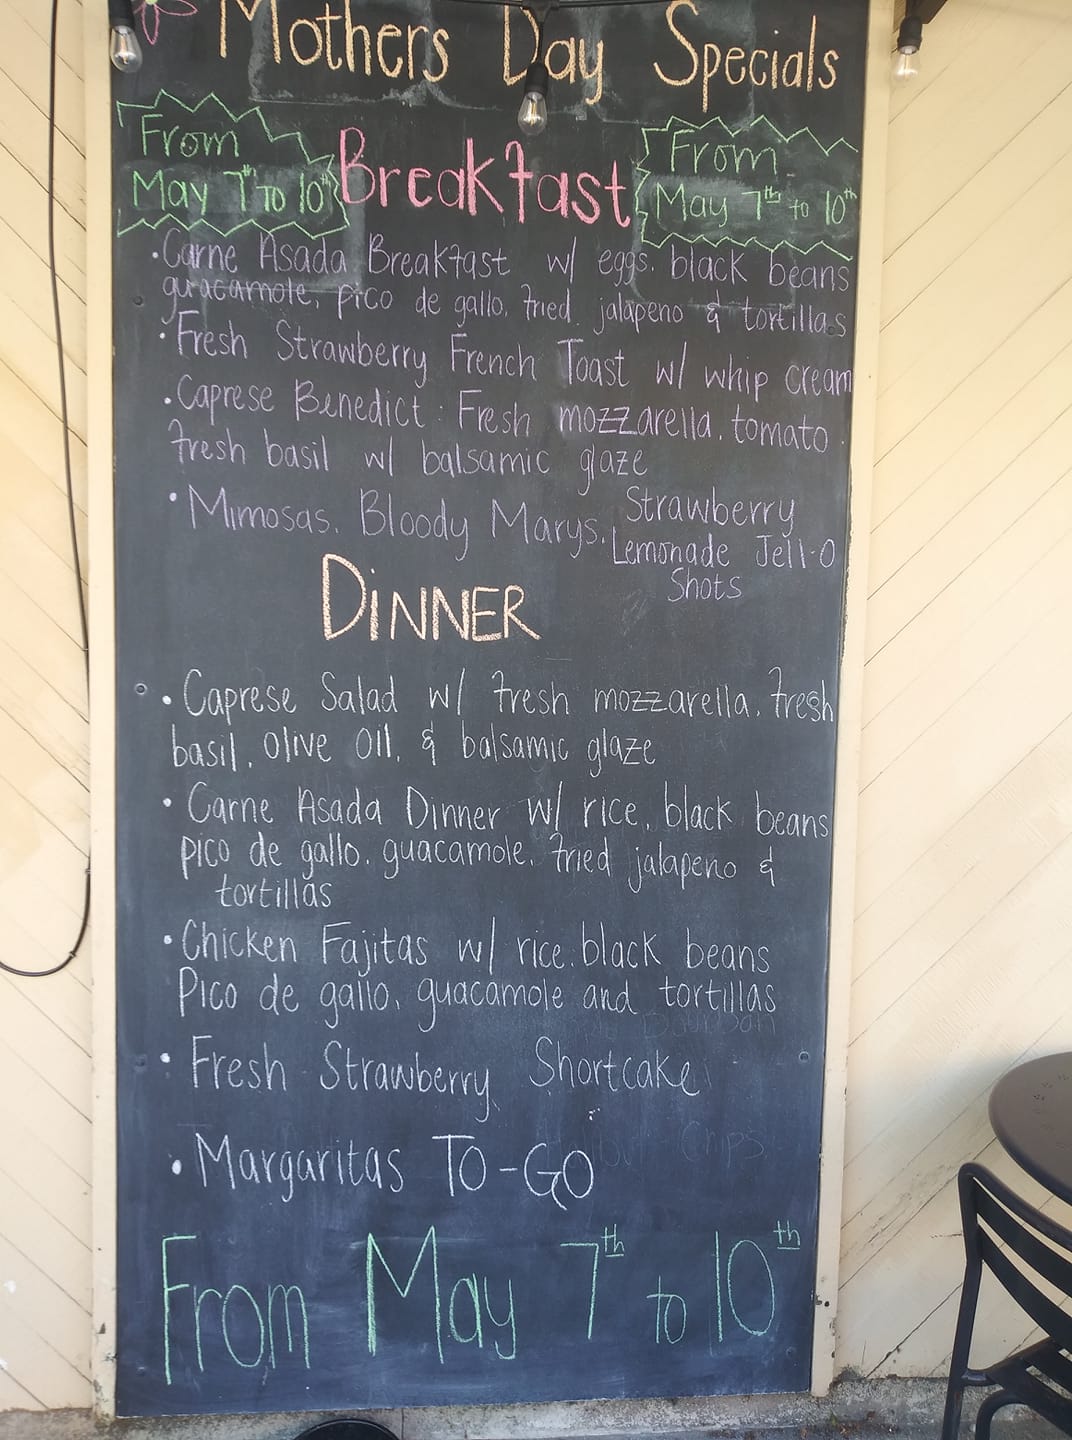 Mothers Day Specials
From
May 7th to 10th
Breakfast
From
May 7th to 10th
• Carne Asada Breakfast w/ eggs, black beans
guacamole, pico de gallo, fried jalapeno & tortillas
• Fresh Strawberry French Toast w/ whip cream
• Caprese Benedict: Fresh mozzarella, tomato
fresh basil w/ balsamic glaze
• Mimosas, Bloody Marys, Strawberry
Lemonade Jell-O
Shots
DiNNER
• Caprese Salad w/ fresh mozzarella, fresh
basil, olive oil, & balsamic glaze
• Carne Asada Dinner w/ rice, black beans
pico de gallo, guacamole, fried jalapeno &
tortillas
• Chicken Fajitas w/ rice, black beans
Pico de gallo, guacamole and tortillas
• Fresh Strawberry Shortcake
• Margaritas TO-GO
Chips
From May 7th to 10th